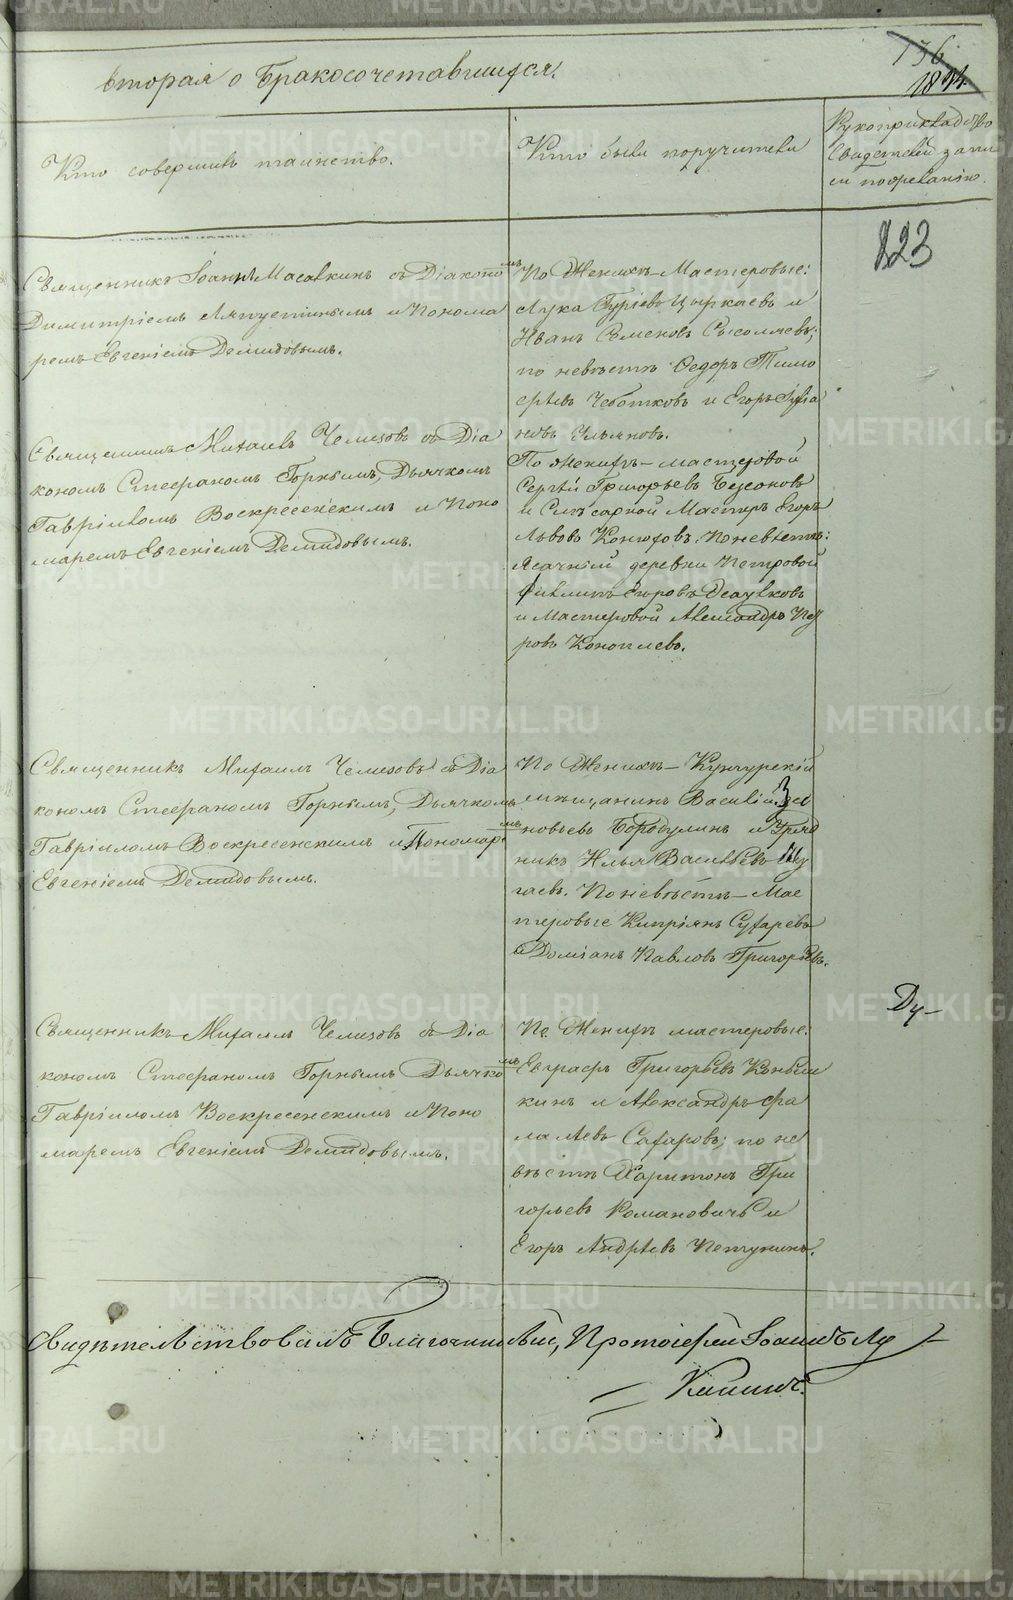 вторая о Бракосочетавшихся.
136
Кто совершилъ таинство.
Кто были поручители
Рукоприкладство
Свидетелей записи
по желанію.
823
Священникъ Іоаннъ Масалкинъ съ Діакономъ
Димитріемъ Ляпустинымъ и Понома
ремъ Евгеніемъ Демидовымъ.
По Женихѣ – Мастеровые:
Лука Гурьевъ Цыркаевъ и
Иванъ Семеновъ Сысоляевъ;
по невѣстѣ Ѳедоръ Тимо
ѳѣевъ Чеботковъ и Егоръ
новъ Ульяновъ.
Священникъ Михаилъ Челизовъ съ Діа
кономъ Стефаномъ Горнымъ, Дьячкомъ
Гавріиломъ Воскресенскимъ и Поно
маремъ Евгеніемъ Демидовымъ.
По женихѣ – мастеровой
Сергѣй Григорьевъ Безсоновъ
и Слѣсарной Мастеръ Егоръ
Львовъ Конюховъ. По невѣстѣ:
Ясачный деревни Петровой
Егоровъ
и Мастеровой Александръ Пет
ровъ Коноплевъ.
Священникъ Михаилъ Челизовъ съ Діа
кономъ Стефаномъ Горнымъ, Дьячкомъ
Гавріиломъ Воскресенскимъ и Пономаремъ
Евгеніемъ Демидовымъ.
По Женихѣ – Кунгурскій
мѣщанинъ Василій Зи
новьевъ Бородулинъ и Уряд
никъ Илья Васильевъ Шу
гаевъ. По невѣстѣ – Мас
теровые Кипріянъ Сухаревъ
и Доміанъ Павловъ Григорьевъ.
Ду–
Священникъ Михаилъ Челизовъ съ Діа
кономъ Стефаномъ Горнымъ Дьячкомъ
Гавріиломъ Воскресенскимъ и Поно
маремъ Евгеніемъ Демидовымъ.
По Женихѣ мастеровые:
Евграфъ Григорьевъ Коньш
кинъ и Александръ Фа
лалѣевъ Сафаровъ; по не
вѣстѣ Харитонъ Гри
горьевъ Романовичевъ и
Егоръ Андрѣевъ Петунинъ.
Свидѣтельствовалъ Благочинный, Протоіерей Іоаннъ Лу
Канинъ.
METRIKI.GASO-URAL.RU